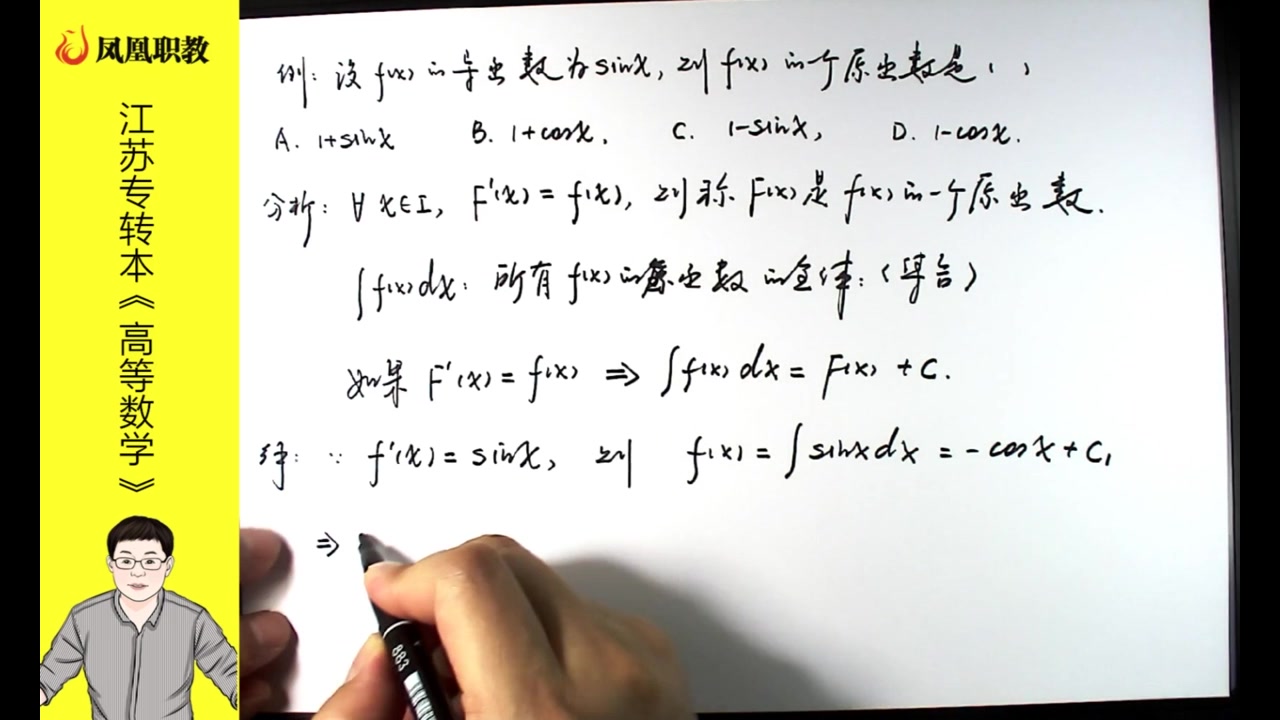 凤凰职教
江苏专转本《高等数学》
例：设 f(x) 的导函数为 sinx, 则 f(x) 的一个原函数是（ ）
A. 1+sinx B. 1+cosx, C. 1-sinx, D. 1-cosx.
分析：∀ x∈I, F'(x) = f(x), 则称 F(x) 是 f(x) 的一个原函数.
∫f(x)dx: 所有 f(x) 的原函数的全体：（集合）
如果 F'(x) = f(x) ⇒ ∫f(x)dx = F(x) + C.
解：∵ f'(x) = sinx, 则 f(x) = ∫sinxdx = -cosx + C₁
⇒
883